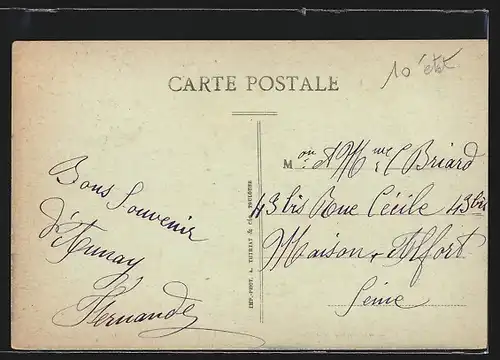 10 été
CARTE POSTALE
Bons Souvenir
d'Aunay
Fernande
IMP.-PHOT. A. THIRIAT & Cie, TOULOUSE
Mon et Mme C Briard
43 bis Rue Cécile 43 bis
Maison-Alfort
Seine